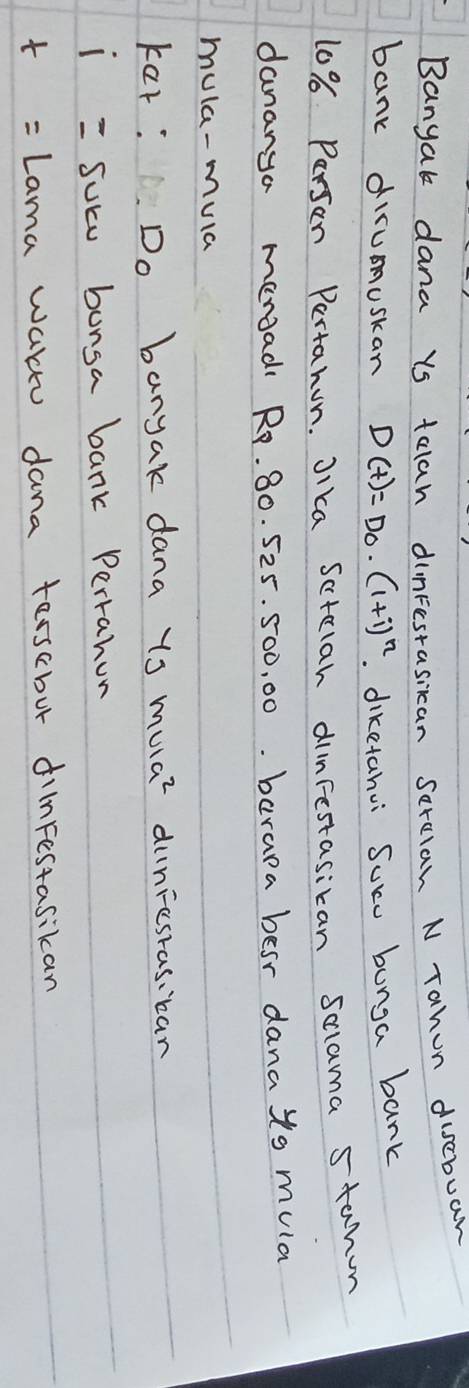 Banyak dana yg telah diinfestasikan setelah N Tahun disebuah
bank dirumuskan D(t)=D₀.(1+i)ⁿ. diketahui suku bunga bank
10% persen pertahun. Jika setelah diinfestasikan selama 5 tahun
dananya menjadi Rp.80.525.500,00. berapa besr dana yg mula
mula-mula
ket: D₀ banyak dana yg mula² diinfestasikan
i = suku bunga bank pertahun
t = Lama waktu dana tersebut diinfestasikan